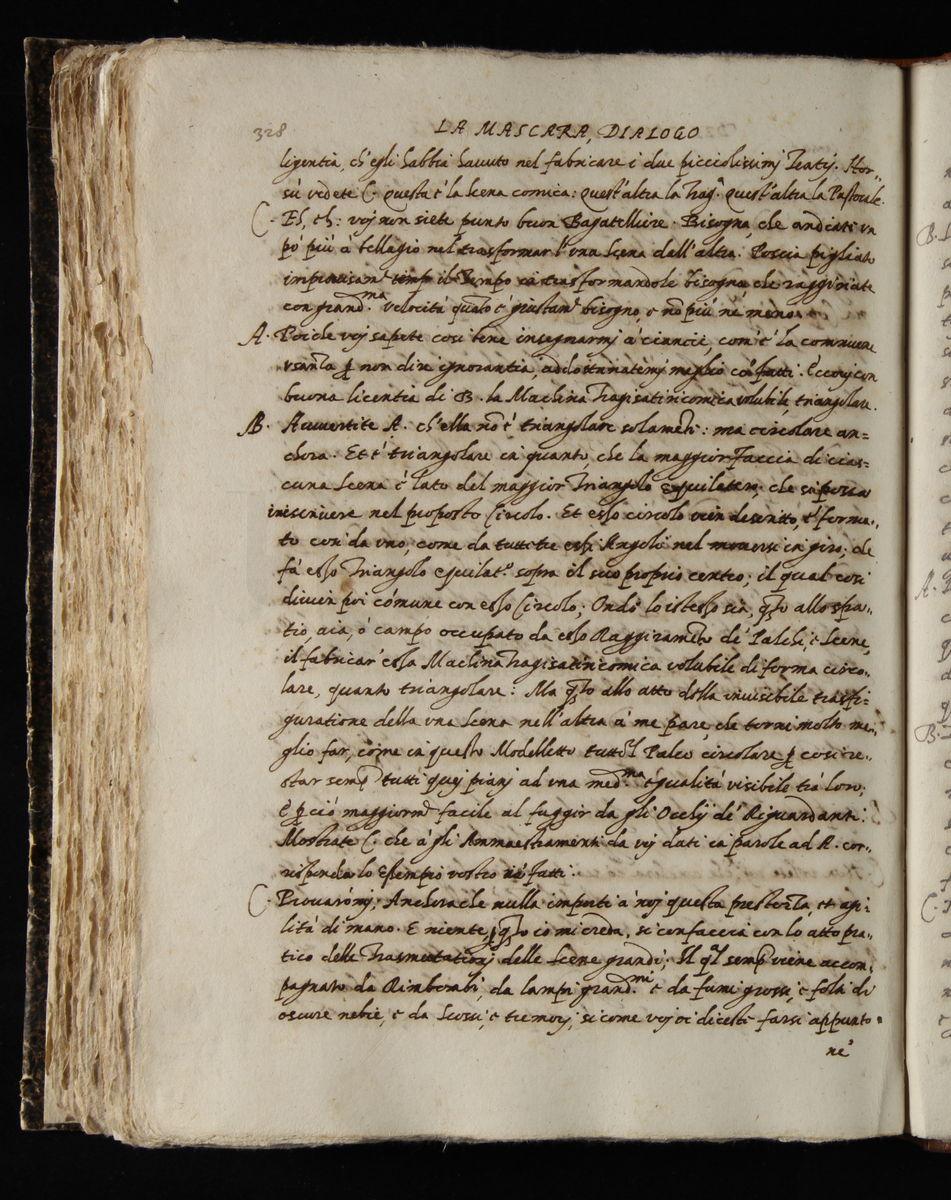 328
LA MASCARA, DIALOGO
ligentia, ch'egli habbia havuto nel fabricare i due picciolissimj Teatrj. Hor„
sù vedete C. questa è la scena comica: quest'altra la Trag.ª quest'altra la Pastorale.
C. Eh, eh: voj non siete punto buon Bagatelliere. Bisogna, che andiate un
pò più à bellagio nel trasformar l'una scena dall'altra. Poscia pigliato
il Tempo trasformandole bisogna che raggiriate
con grand.ma velocità quanto è giustam.te bisogno, e nõ più, nè meno.
A. Poiche voj sapete così bene insegnarmj à ciancie, com'è la commune
usanza p non dire ignorantia, addottrinatemj meglio co' fatti. Eccovj con
buona licentia di B. la Machina Tragisatiricomica volubile, triangolare.
B. Auuertite A. ch'ella nõ è triangolare solamente: ma circolare an=
chora. Et è triangolare in quanto, che la maggior Faccia di cias=
cuna Scena è lato del maggior Triangolo equilatero, che si possa
inscriuere nel proposto Circolo. Et esso circolo vien descritto, e forma„
to con da uno, come da tutti tre essi Angoli nel mouersi in giro; che
fà esso Triangolo equilat.º sopra il suo proprio centro; il qual così
diuien poi cõmune con esso Circolo. Onde lo istesso sia, q.to allo spa„
tio, aia, ò campo occupato da esso Raggiramẽto de' Palchi, e Scene,
il fabricar' essa Machina Tragisatiricomica volubile di forma circo„
lare, quanto triangolare: Ma q.to allo atto della inuisibile trasfi=
guratione della una Scena nell'altra à me pare, che torni molto me„
glio far, cóme in questo Modelletto tutto'l Palco circolare p così re„
star semp tutti quej pianj ad una med.ma egualità visibile trà loro;
È p ciò maggiorm.te facile al fuggir da gli Occhij de' Riguardanti.
Mostrate C. che à gli Ammaestramenti da voj dati in parole ad A. cor„
risponda lo Essempio vostro ne' fatti.
C. Prouarómj; Anchorache nulla importi à noj questa prestezza, et agi=
lità di mano. E niente, q.to io mi creda, si confaccia con lo atto pra„
tico delle Trasmutationj delle Scene grandi; Il q.l semp viene accom„
pagnato da Rimbombi, da lampi grand.mi e da fumi grossi, e folti di
oscure nebie, e da Scossi, e tremorj, si come voj ci diceste farsi appunto
ne'